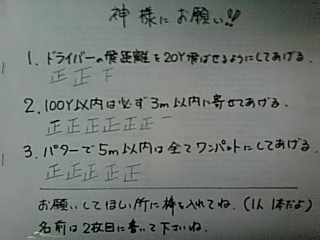 神様にお願い!!
1. ドライバーの飛距離を20Y飛ばせるようにしてあげる。
正正下
2. 100Y以内は必ず3m以内に寄せてあげる。
正正正正正正一
3. パターで5m以内は全てワンパットにしてあげる。
正正正正正
お願いしてほしい所に棒を入れてね。(1人1本だよ)
名前は2枚目に書いて下さいね。